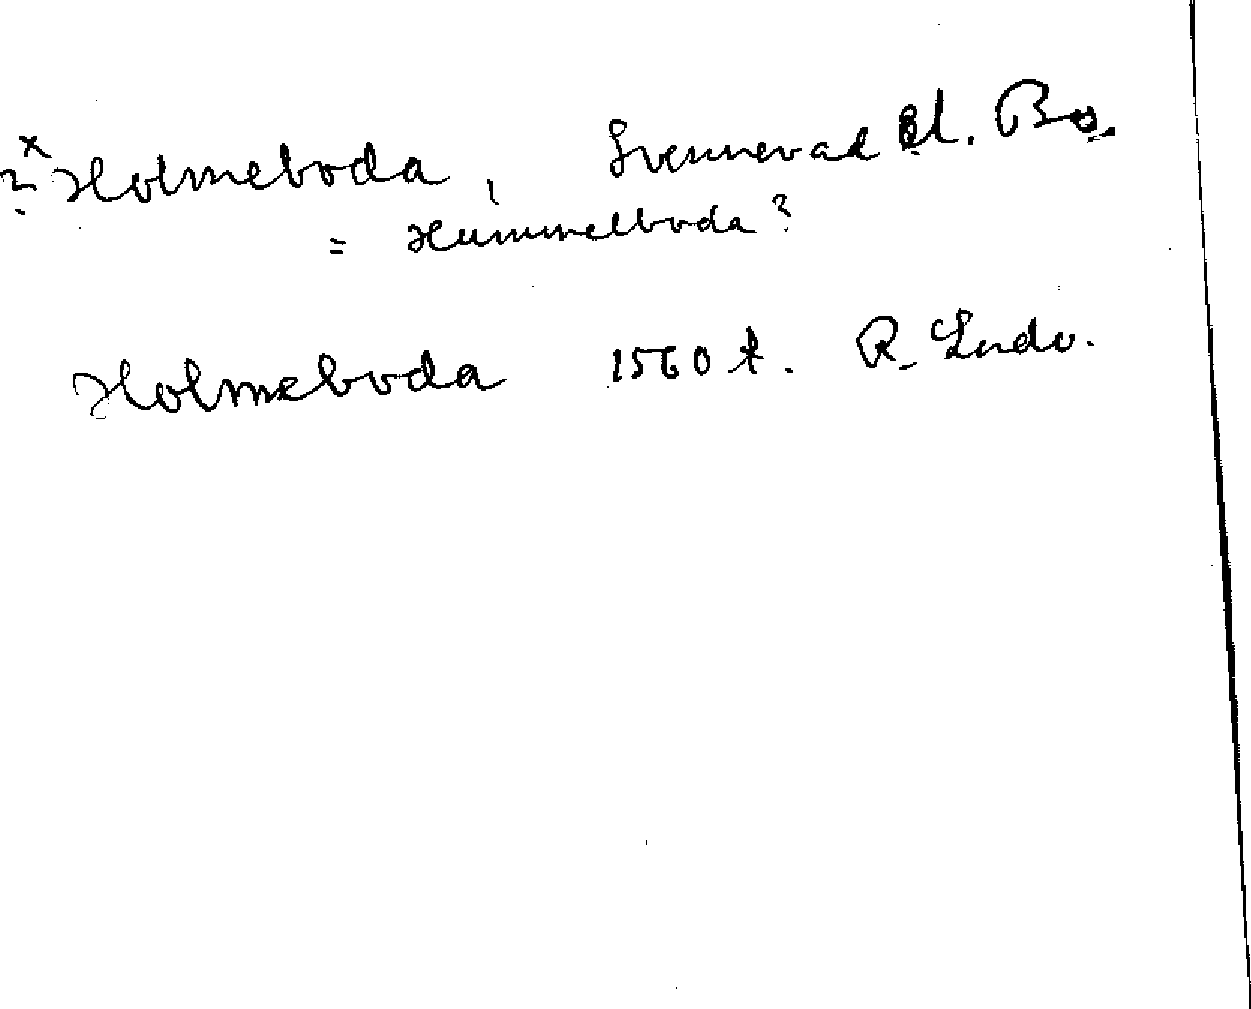 ? x Holmeboda, Svennevad sn. Ös.
= Hummelboda?
Holmeboda 1560 t. R. Lndv.